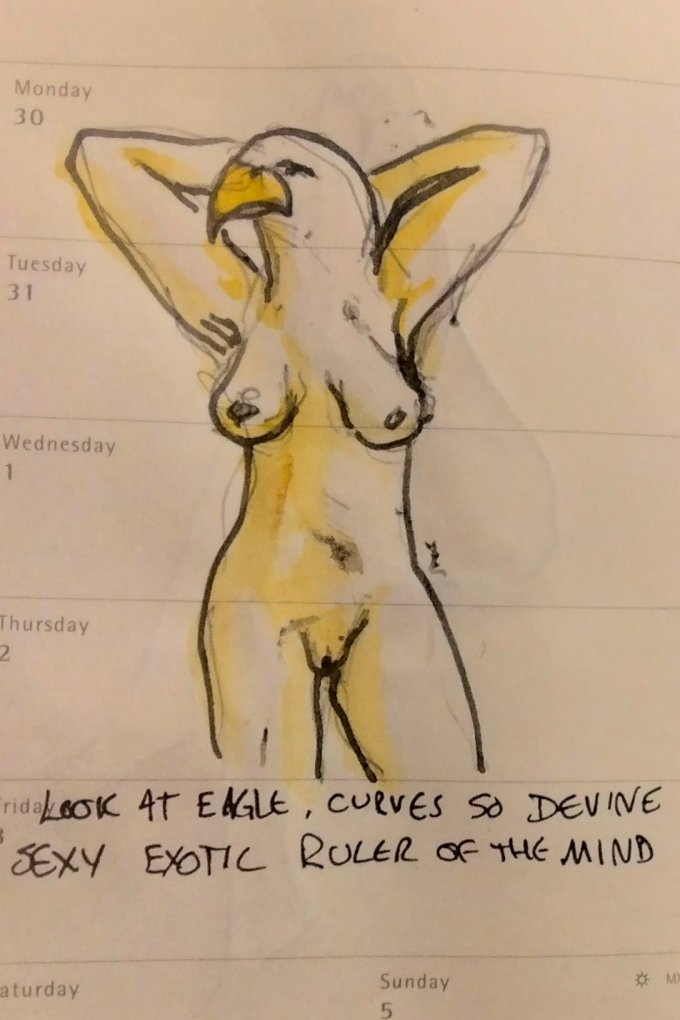 Monday
30
Tuesday
31
Wednesday
1
Thursday
2
Friday
LOOK AT EAGLE, CURVES SO DEVINE
SEXY EXOTIC RULER OF THE MIND
aturday
Sunday
5